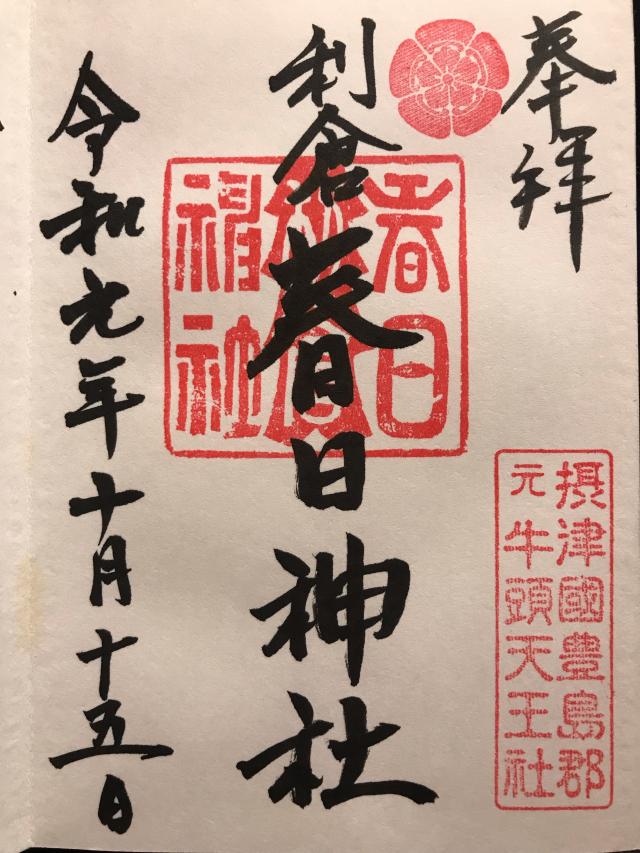 奉拝
摂津國豊島郡
元牛頭天王社
利倉春日神社
春日
神社
令和元年十月十五日